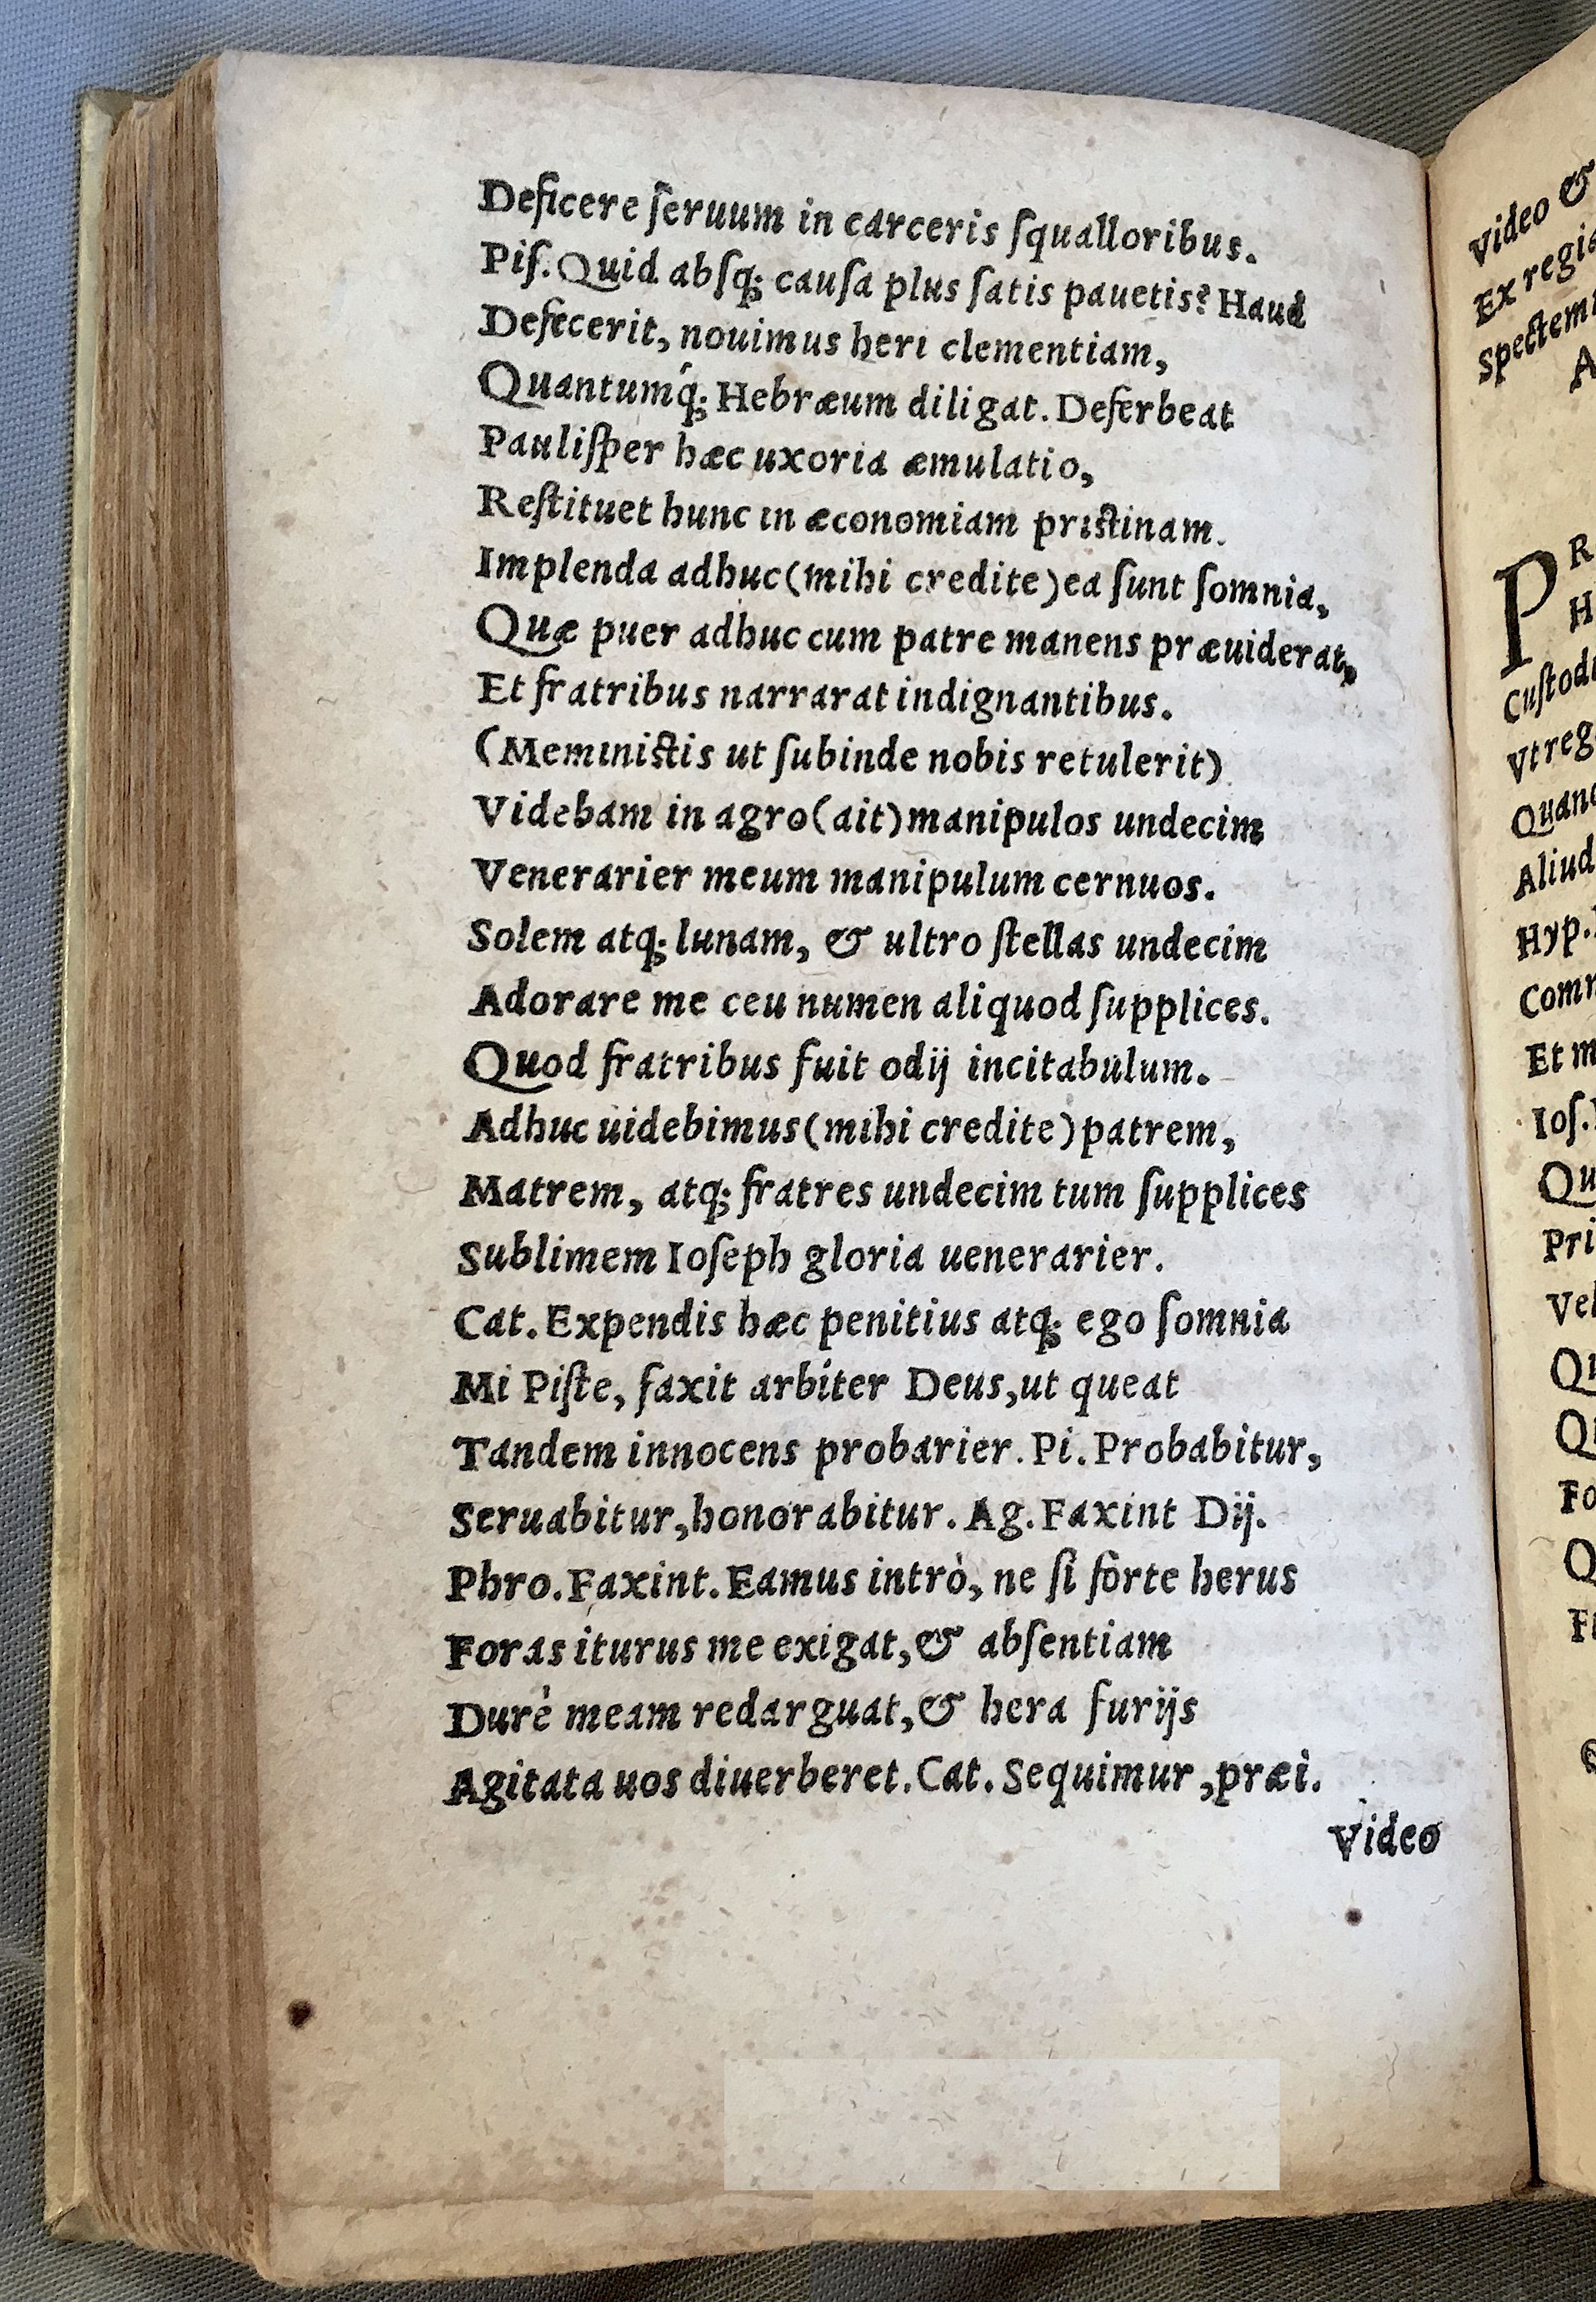 Deficere ſeruum in carceris ſqualloribus.
Piſ. Quid abſq; cauſa plus ſatis pauetis? Haud
Defecerit, nouimus heri clementiam,
Quantumq́; Hebræum diligat. Deferbeat
Pauliſper hæc uxoria æmulatio,
Reſtituet hunc in œconomiam priſtinam.
Implenda adhuc (mihi credite) ea ſunt ſomnia,
Quæ puer adhuc cum patre manens præuiderat,
Et fratribus narrarat indignantibus.
(Meminiſtis ut ſubinde nobis retulerit)
Videbam in agro (ait) manipulos undecim
Venerarier meum manipulum cernuos.
Solem atq; lunam, & ultro ſtellas undecim
Adorare me ceu numen aliquod ſupplices.
Quod fratribus fuit odij incitabulum.
Adhuc uidebimus (mihi credite) patrem,
Matrem, atq; fratres undecim tum ſupplices
Sublimem Ioſeph gloria uenerarier.
Cat. Expendis hæc penitius atq; ego ſomnia
Mi Piſte, faxit arbiter Deus, ut queat
Tandem innocens probarier. Pi. Probabitur,
Seruabitur, honorabitur. Ag. Faxint Dij.
Phro. Faxint. Eamus intrò, ne ſi forte herus
Foras iturus me exigat, & abſentiam
Durè meam redarguat, & hera furijs
Agitata uos diuerberet. Cat. Sequimur, præi.
Video
Video &
Ex
Spectem
P
Aliud
Hyp.
Et
Ioſ.